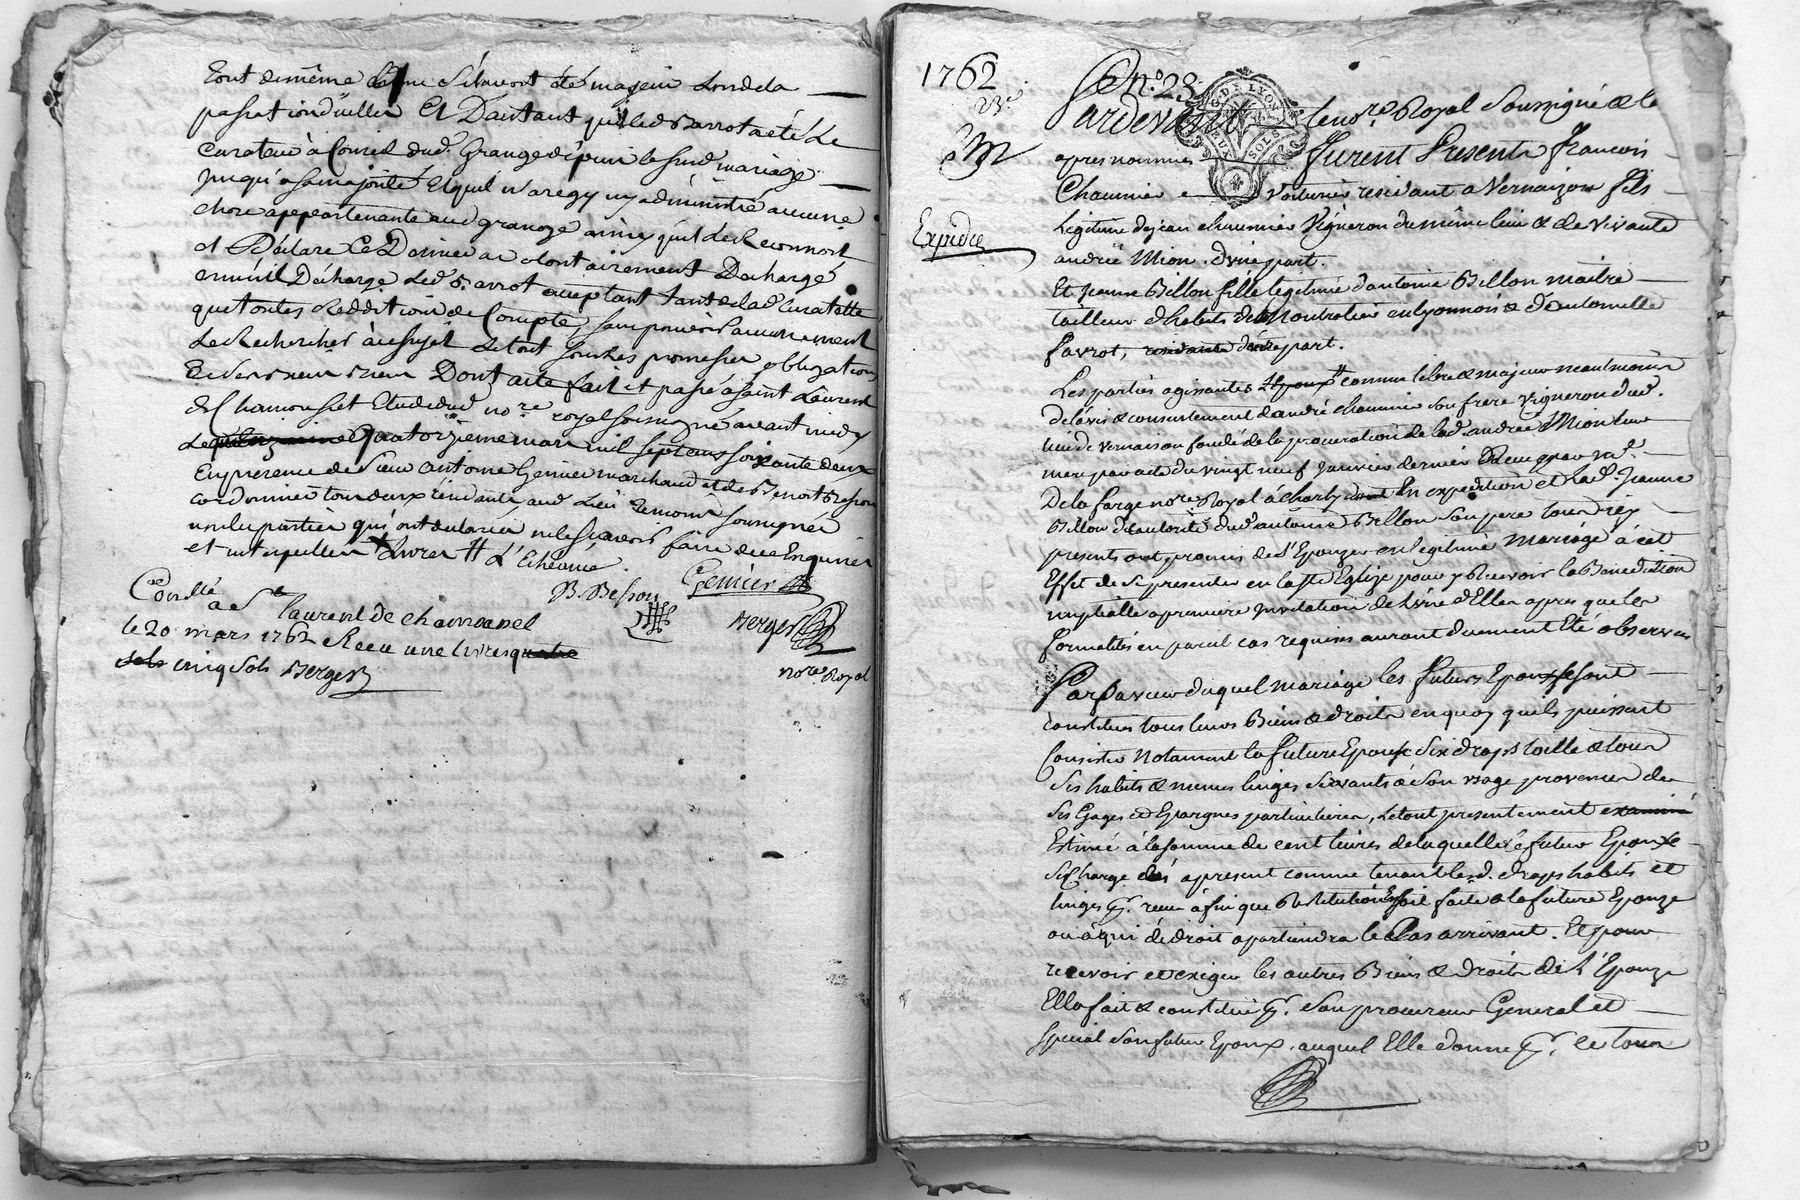 tout de même
passation d'ycelles Et D'autant que led Barrot a été Le
Curateur à Conseil dud. Grange depuis le susd. mariage
jusqu'a sa majorité Et qu'il n'a regy ny administré aucune
chose appartenante aud grange ainsy qu'il Le Reconnoit
et Déclare Ce Dernier a volontairement Dechargé
Decharge Led. Barrot acceptant tant de lad. Curatelle
que toutes Reddition de Compte, sans pouvoir aucunement
Le Rechercher à ce sujet Le tout sous les promesses obligations
Dont acte fait et passé à saint Laurent
De Chamousset Etude dud nore. royal soussigné avant midy
Le quatorzieme mars mil sept cens soixante deux
En presence de Sieur antoine Genier marchand et de Benoit Besson
cordonnier tous deux residants aud. Lieu temoins soussignés
non les parties qui ont declaré ne le sçavoir faire de ce Enquises
et interpellées
B. Besson Genier
Berger
nore. Royal
Conllé
a St laurent de chamousset
le 20 mars 1762 Receu une livres quatre
sols cinq sols Berger
1762
23e
Expedié
n.º 23.
G. DE LYON
SOLS
Pardevant le nore. Royal Soussigné & les
apres nommés furent Presents François
Chaumier voiturier residant a Vernaizon fils
Legitime de jean chaumier Vigneron du même lieu & de vivante
andrée Mion. d'une part.
Et jeanne Billon fille legitime d'antoine Billon maitre
tailleur d'habits de Montrotier en lyonnois & d'antoinette
favrot, residante d'autre part.
Les parties agissantes comme libre & majeur neantmoins
De l'avis & consentement d'andré chaumier son frere Vigneron dud.
lieu de vernaison fondé de la procuration de lad. andrée Mion leur
mere par acte du vingt neuf janvier dernier Receu par Me.
De la farge nore. Royal à charly En expedition et lad. Jeanne
Billon de l'autorité dud. antoine Billon son pere tous icy
presents ont promis de s'Epouzer en legitime mariage à cet
Effet de se presenter en la ste Eglise pour y Recevoir la Benediction
nuptialle a premiere invitation de L'une d'Elles apres que les
formalités en pareil cas requises auront duement Eté observées
Par faveur duquel mariage les futurs Epoux se sont
constitués tous leurs Biens & droits en quoy quils puissent
Consister Notament la future Epouse six draps toille & tous
Ses habits & menus linges servants à son usage provenus de
Ses Gages et Epargnes particulieres, Le tout presentement examiné
Estimé à la somme de cent livres de laquelle le futur Epoux
Se Charge dès apresent comme tenant lesd. draps habits et
linges pr. receu à fin que Restitution soit faite a la future Epouze
ou à qui de droit apartiendra le Cas arrivant. Et pour
recevoir et exiger les autres Biens & droits de L'Epouze
Elle fait & constitue pr. son procureur General et
special son futur Epoux, auquel Elle donne pr. ce tous